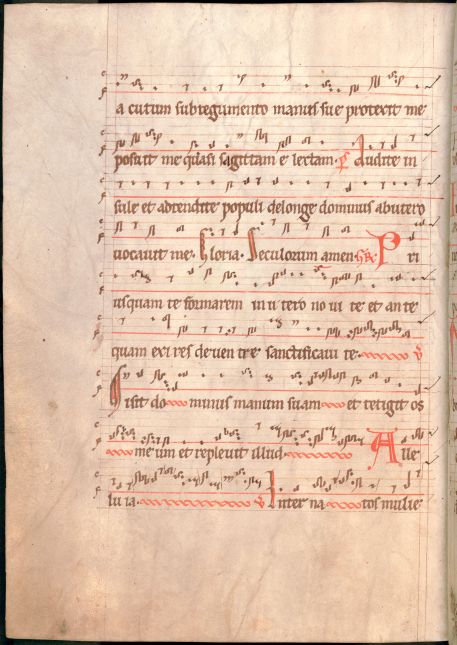 acutum sub tegumento manus sue protexit me
posuit me quasi sagittam electam. p̄ Audite in
sule et adtendite populi de longe dominus ab utero
vocavit me. Gloria. Seculorum amen. GR̄ Pri
usquam te formarem in utero novi te et ante
quam exires de ventre sanctificavi te. v̄
Misit dominus manum suam et tetigit os
meum et replevit illud. Alle
luia. v̄ Inter natos mulie